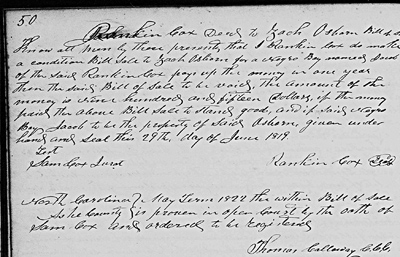 50
Rankin Cox Deed to Zach Osborn Bill Sale
Know all men by those presents that I Rankin Cox do make
a condition Bill Sale to Zach Osborn for a negro Boy named Jacob
if the said Rankin Cox pays up the money in one year
then the said Bill of Sale to be void, the amount of the
money is nine hundred and fifteen Dollars, if the money
paid the above Bill Sale to stand good, and if said negro
Boy Jacob to be the property of said Osborn, given under
hand and seal this 29th day of June 1819
Test
Sam Cox Jurat Rankin Cox Seal
North Carolina May Term 1822 the within Bill of Sale
Ashe County is proven in open Court by the oath of
Sam Cox and ordered to be Registered
Thomas Calloway C.C.C.